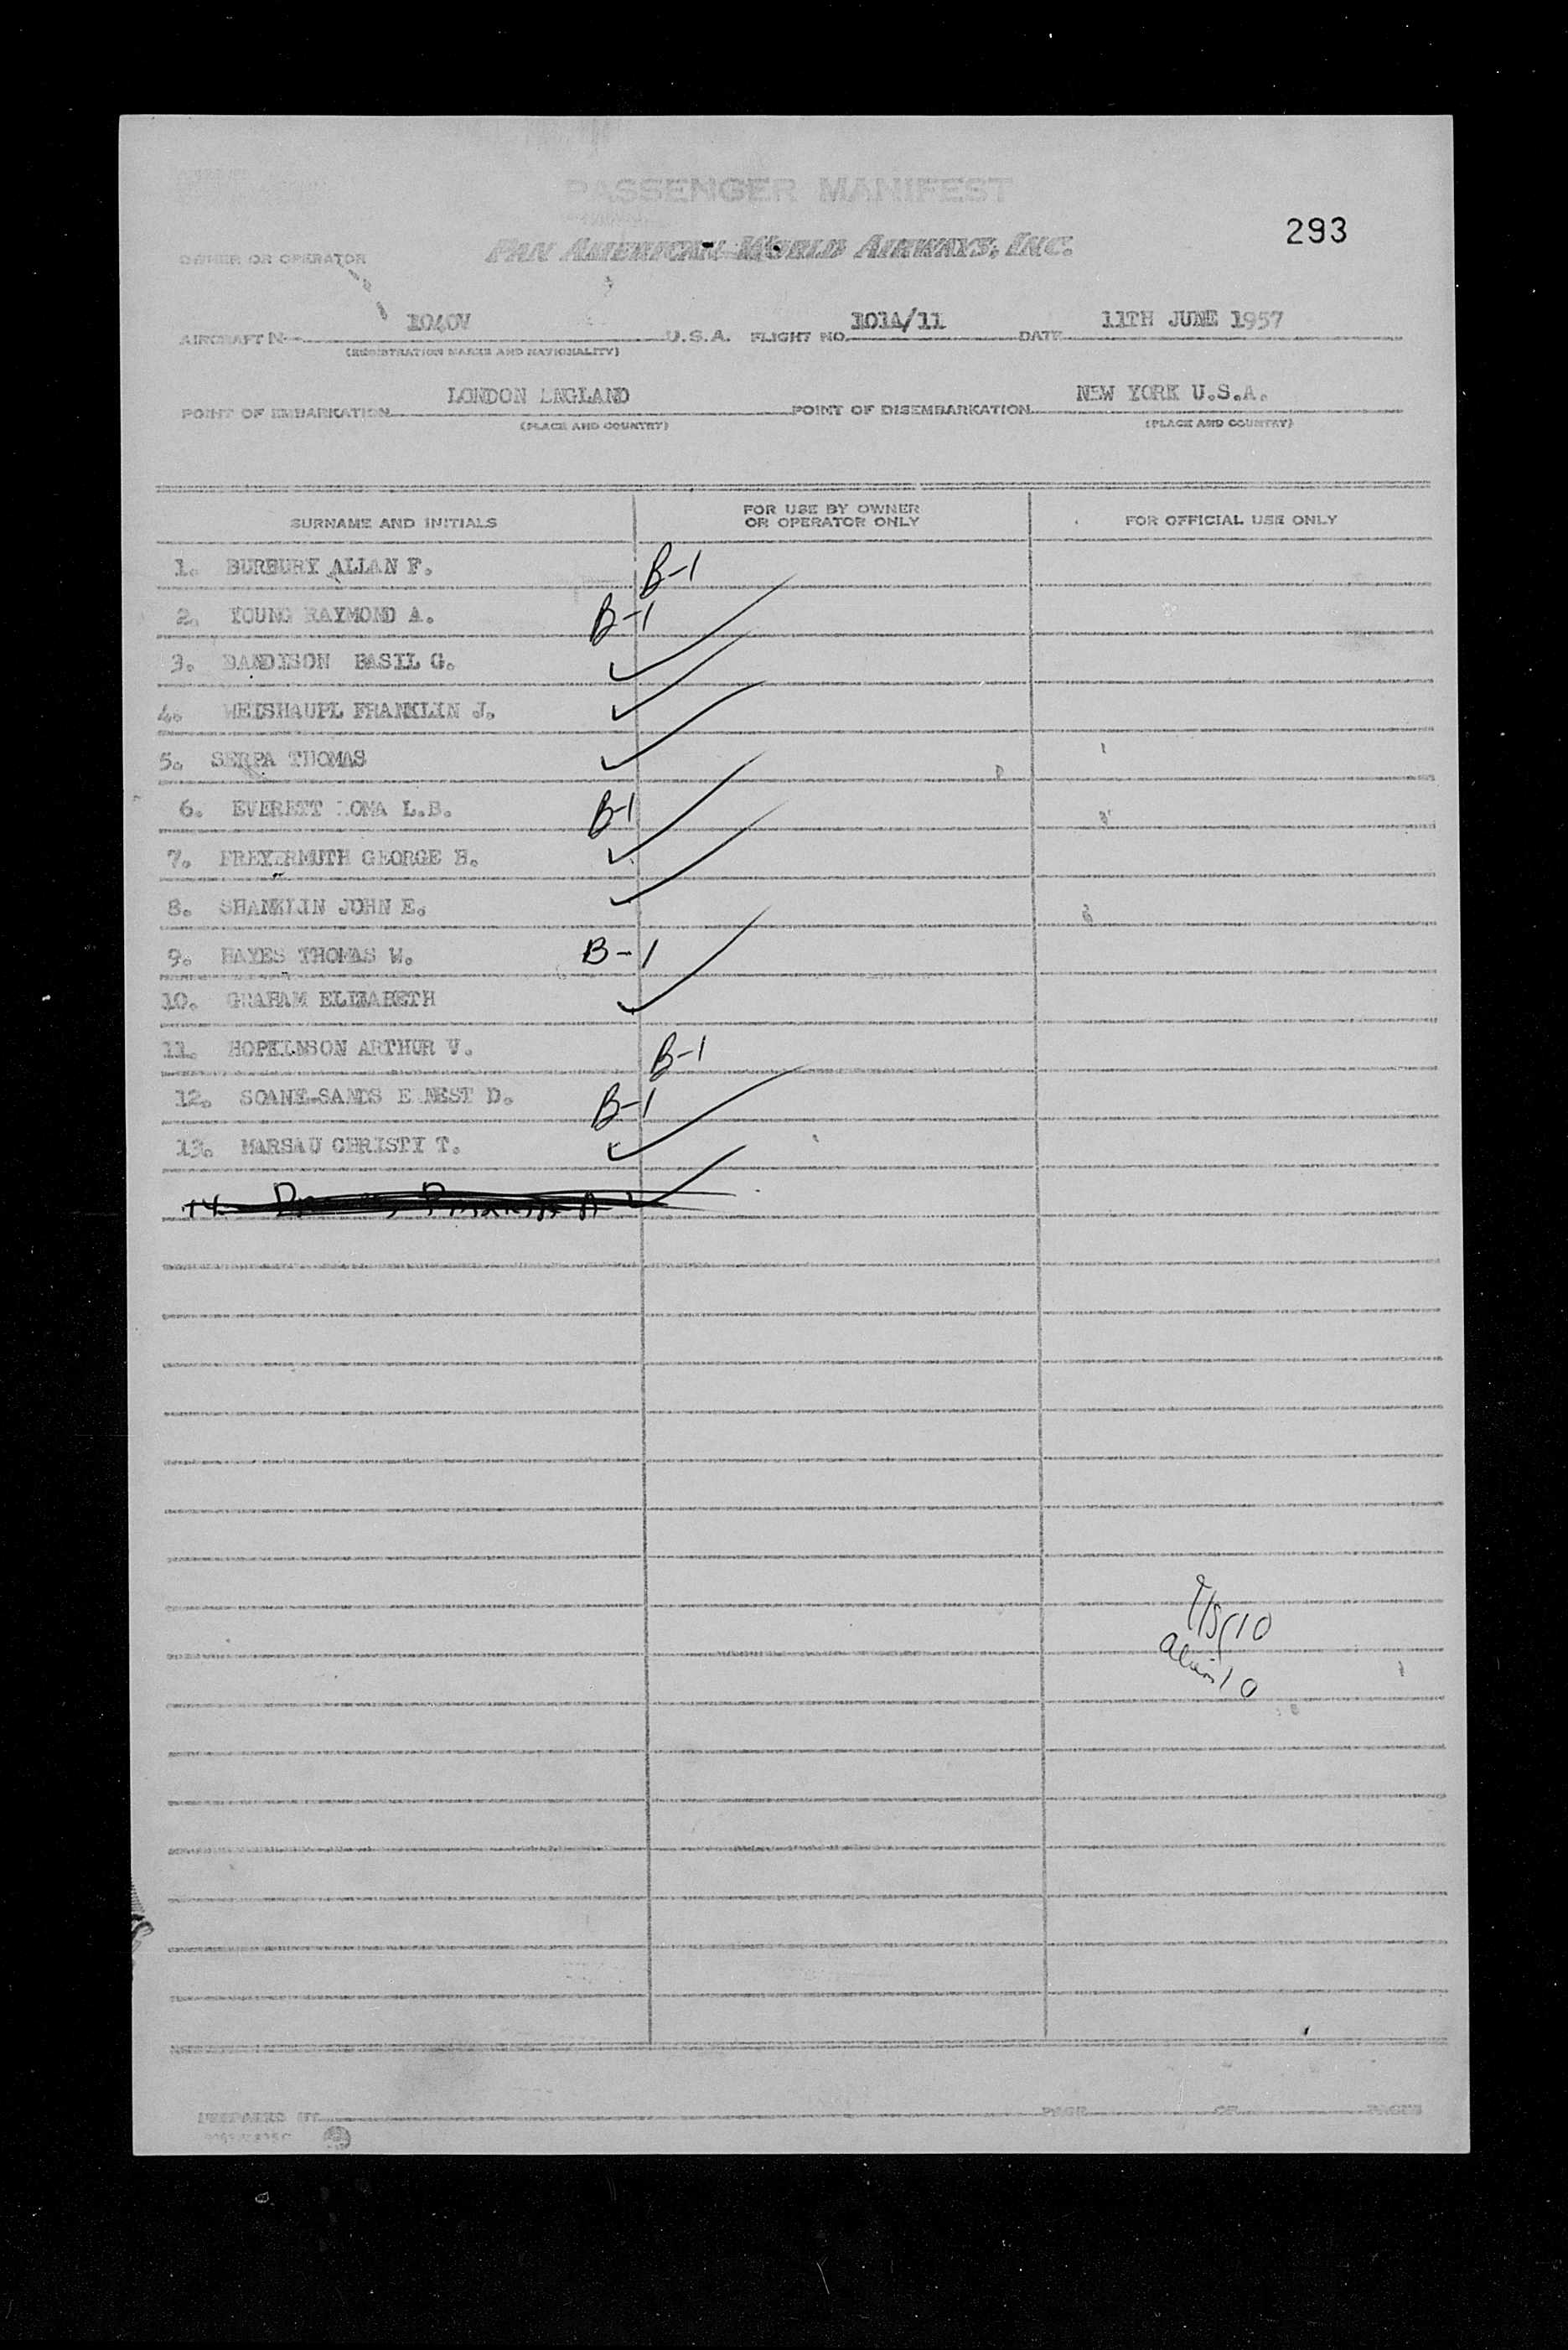 PASSENGER MANIFEST
293
PAN AMERICAN WORLD AIRWAYS, INC.
OWNER OR OPERATOR
AIRCRAFT N 1040V U.S.A. FLIGHT NO. 101A/11 DATE 11TH JUNE 1957
(REGISTRATION MARKS AND NATIONALITY)
POINT OF EMBARKATION LONDON ENGLAND POINT OF DISEMBARKATION NEW YORK U.S.A.
(PLACE AND COUNTRY) (PLACE AND COUNTRY)
SURNAME AND INITIALS FOR USE BY OWNER OR OPERATOR ONLY FOR OFFICIAL USE ONLY
1. BURBURY ALLAN F. B-1
2. YOUNG RAYMOND A. B-1
3. DANDISON BASIL G. ✓
4. WEISHAUPL FRANKLIN J. ✓
5. SERPA THOMAS ✓
6. EVERETT L.B. B-1
7. FREYERMUTH GEORGE B. ✓
8. SHANKLIN JOHN E. ✓
9. HAYES THOMAS W. B-1
10. GRAHAM ELIZABETH ✓
11. HOPKINSON ARTHUR V. B-1
12. SOANE-SANDS E NEST D. B-1
13. MARSAU CHRISTY T. ✓
14. ✓
10
alien 10
PREPARED BY PAGE OF PAGES